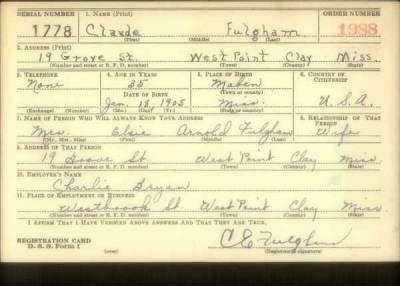 SERIAL NUMBER 1. NAME (Print) ORDER NUMBER
1778 Claude Fulgham 1988
(First) (Middle) (Last)
2. ADDRESS (Print)
19 Grove St. West Point Clay Miss.
(Number and street or R. F. D. number) (Town) (County) (State)
3. TELEPHONE 4. AGE IN YEARS 5. PLACE OF BIRTH 6. COUNTRY OF CITIZENSHIP
None 35 Maben
DATE OF BIRTH (Town or county)
Jan. 18, 1905 Miss. U.S.A.
(Exchange) (Number) (Mo.) (Day) (Yr.) (State or country)
7. NAME OF PERSON WHO WILL ALWAYS KNOW YOUR ADDRESS 8. RELATIONSHIP OF THAT PERSON
Mrs. Elsie Arnold Fulgham Wife
(Mr., Mrs., Miss) (First) (Middle) (Last)
9. ADDRESS OF THAT PERSON
19 Grove St West Point Clay Miss
(Number and street or R. F. D. number) (Town) (County) (State)
10. EMPLOYER'S NAME
Charlie Bryan
11. PLACE OF EMPLOYMENT OR BUSINESS
Westbrook St West Point Clay Miss
(Number and street or R. F. D. number) (Town) (County) (State)
I AFFIRM THAT I HAVE VERIFIED ABOVE ANSWERS AND THAT THEY ARE TRUE.
REGISTRATION CARD
D. S. S. Form 1 C E Fulgham
(Registrant's signature)